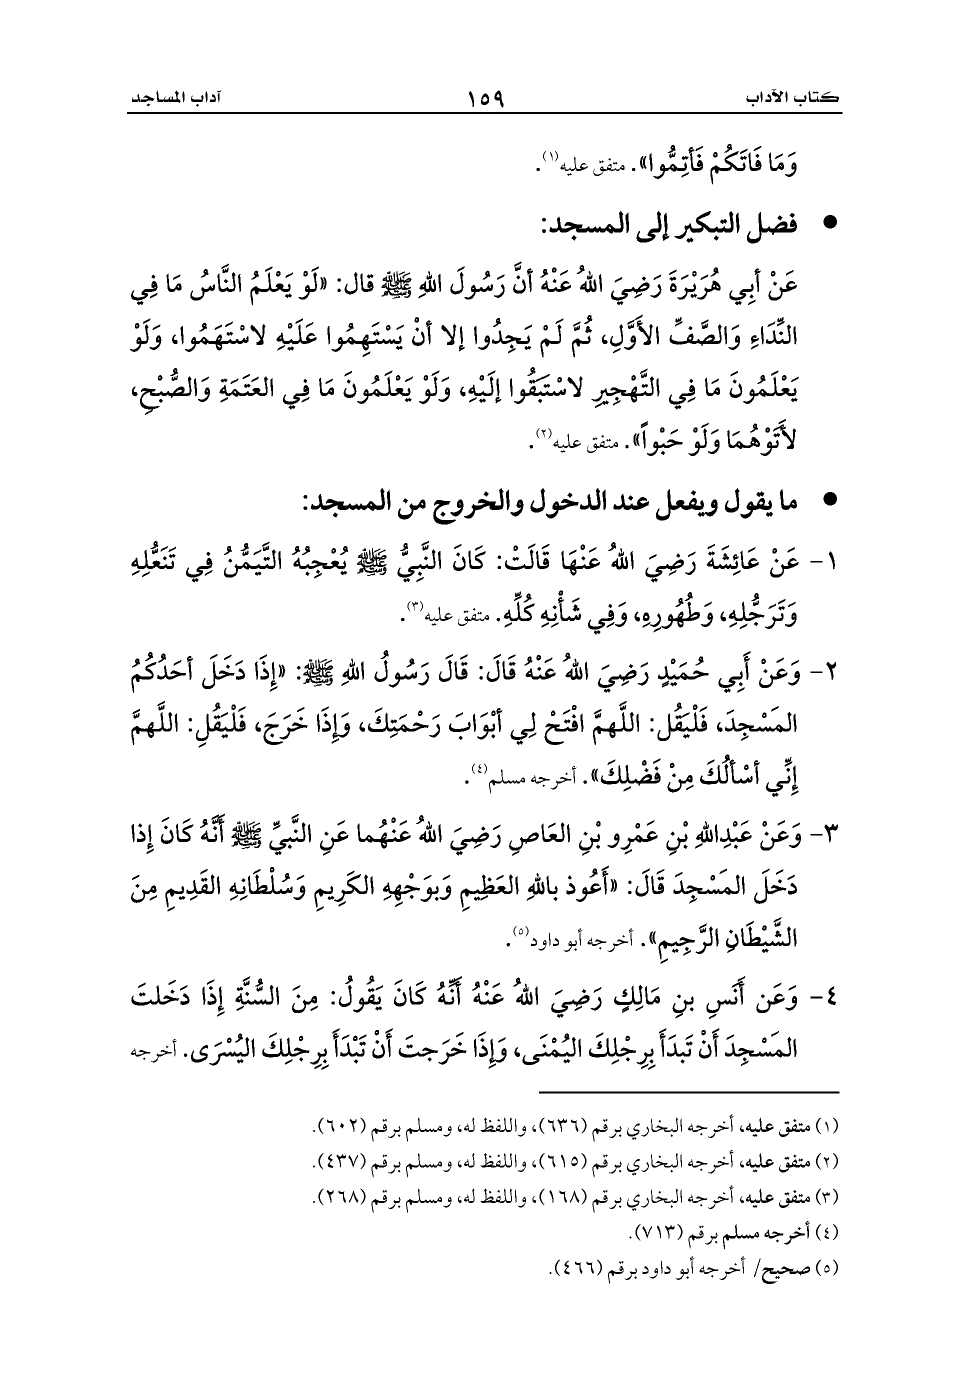 كتاب الآداب ١٥٩ آداب المساجد
وَمَا فَاتَكُمْ فَأتِمُّوا». متفق عليه(١).
● فضل التبكير إلى المسجد:
عَنْ أبِي هُرَيْرَةَ رَضِيَ اللهُ عَنْهُ أنَّ رَسُولَ اللهِ ﷺ قال: «لَوْ يَعْلَمُ النَّاسُ مَا فِي
النِّدَاءِ وَالصَّفِّ الأَوَّلِ، ثُمَّ لَمْ يَجِدُوا إلا أنْ يَسْتَهِمُوا عَلَيْهِ لاسْتَهَمُوا، وَلَوْ
يَعْلَمُونَ مَا فِي التَّهْجِيرِ لاسْتَبَقُوا إلَيْهِ، وَلَوْ يَعْلَمُونَ مَا فِي العَتَمَةِ وَالصُّبْحِ،
لأَتَوْهُمَا وَلَوْ حَبْواً». متفق عليه(٢).
● ما يقول ويفعل عند الدخول والخروج من المسجد:
١- عَنْ عَائِشَةَ رَضِيَ اللهُ عَنْهَا قَالَتْ: كَانَ النَّبِيُّ ﷺ يُعْجِبُهُ التَّيَمُّنُ فِي تَنَعُّلِهِ
وَتَرَجُّلِهِ، وَطُهُورِهِ، وَفِي شَأْنِهِ كُلِّهِ. متفق عليه(٣).
٢- وَعَنْ أَبِي حُمَيْدٍ رَضِيَ اللهُ عَنْهُ قَالَ: قَالَ رَسُولُ اللهِ ﷺ: «إِذَا دَخَلَ أحَدُكُمُ
المَسْجِدَ، فَلْيَقُل: اللَّهمَّ افْتَحْ لِي أبْوَابَ رَحْمَتِكَ، وَإِذَا خَرَجَ، فَلْيَقُلِ: اللَّهمَّ
إِنِّي أسْألُكَ مِنْ فَضْلِكَ». أخرجه مسلم(٤).
٣- وَعَنْ عَبْدِاللهِ بْنِ عَمْرِو بْنِ العَاصِ رَضِيَ اللهُ عَنْهُما عَنِ النَّبِيِّ ﷺ أَنَّهُ كَانَ إِذا
دَخَلَ المَسْجِدَ قَالَ: «أَعُوذ باللهِ العَظِيمِ وَبوَجْهِهِ الكَرِيمِ وَسُلْطَانِهِ القَدِيمِ مِنَ
الشَّيْطَانِ الرَّجِيمِ». أخرجه أبو داود(٥).
٤- وَعَن أَنَسِ بنِ مَالِكٍ رَضِيَ اللهُ عَنْهُ أَنَّهُ كَانَ يَقُولُ: مِنَ السُّنَّةِ إِذَا دَخَلتَ
المَسْجِدَ أَنْ تَبدَأَ بِرِجْلِكَ اليُمْنَى، وَإِذَا خَرَجتَ أَنْ تَبْدَأَ بِرِجْلِكَ اليُسْرَى. أخرجه
(١) متفق عليه، أخرجه البخاري برقم (٦٣٦)، واللفظ له، ومسلم برقم (٦٠٢).
(٢) متفق عليه، أخرجه البخاري برقم (٦١٥)، واللفظ له، ومسلم برقم (٤٣٧).
(٣) متفق عليه، أخرجه البخاري برقم (١٦٨)، واللفظ له، ومسلم برقم (٢٦٨).
(٤) أخرجه مسلم برقم (٧١٣).
(٥) صحيح/ أخرجه أبو داود برقم (٤٦٦).